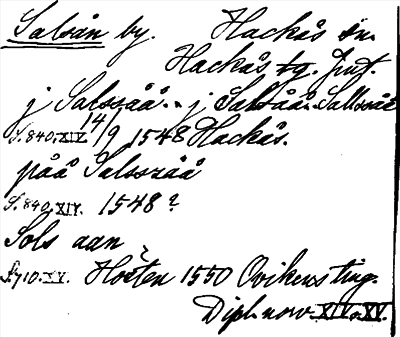 Salsån by. Hackås sn.
Hackås tg. Jmt.
j Salszåå. j Salsåå. Salszåå
S. 840. XIV. 14/9 1548 Hackås.
påå Salszåå
S. 840. XIV. 1548?
Sols aan
S. 710. XV. Hösten 1550 Ovikens ting.
Dipl. norv. XIV. XV.